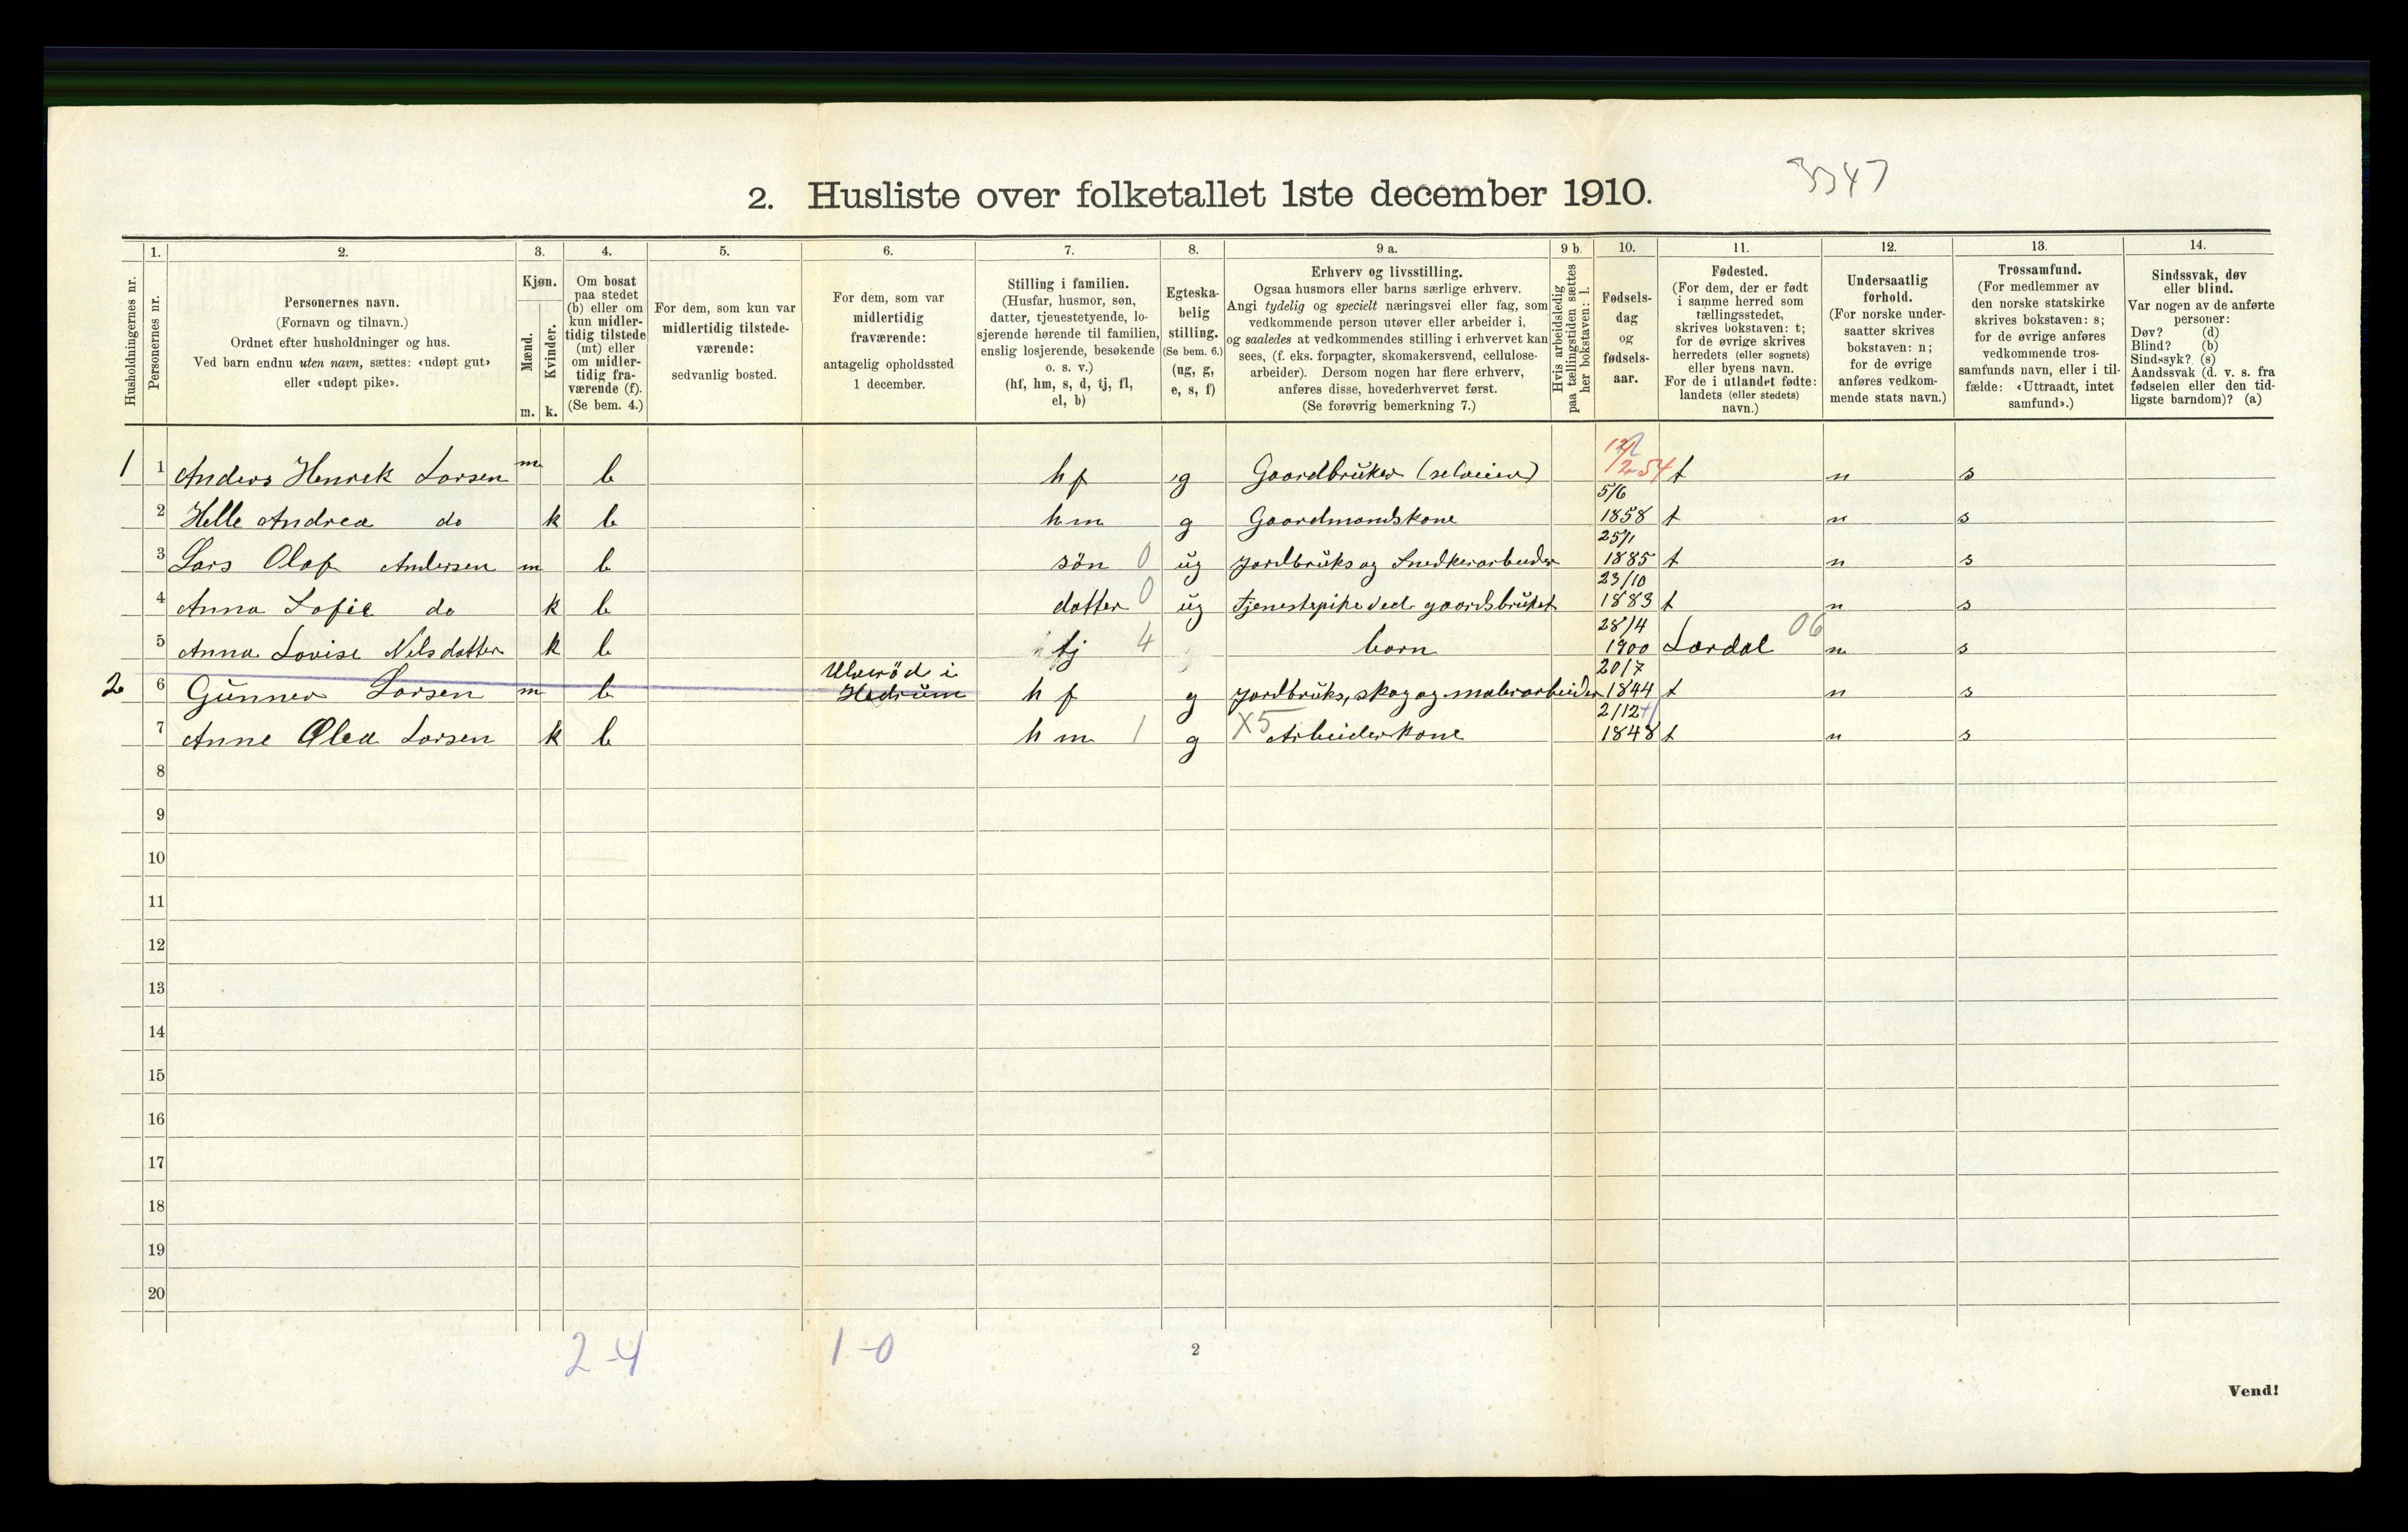 3347
2. Husliste over folketallet 1ste december 1910.
Husholdningernes nr.
1.
Personernes nr.
2.
Personernes navn.
(Fornavn og tilnavn.)
Ordnet efter husholdninger og hus.
Ved barn endnu uten navn, sættes: «udøpt gut»
eller «udøpt pike».
3.
Kjøn.
Mænd.
m.
Kvinder.
k.
4.
Om bosat
paa stedet
(b) eller om
kun midler-
tidig tilstede
(mt) eller
om midler-
tidig fra-
værende (f).
(Se bem. 4.)
5.
For dem, som kun var
midlertidig tilstede-
værende:
sedvanlig bosted.
6.
For dem, som var
midlertidig
fraværende:
antagelig opholdssted
1 december.
7.
Stilling i familien.
(Husfar, husmor, søn,
datter, tjenestetyende, lo-
sjerende hørende til familien,
enslig losjerende, besøkende
o. s. v.)
(hf, hm, s, d, tj, fl,
el, b)
8.
Egteska-
belig
stilling.
(Se bem. 6.)
(ug, g,
e, s, f)
9 a.
Erhverv og livsstilling.
Ogsaa husmors eller barns særlige erhverv.
Angi tydelig og specielt næringsvei eller fag, som
vedkommende person utøver eller arbeider i,
og saaledes at vedkommendes stilling i erhvervet kan
sees, (f. eks. forpagter, skomakersvend, cellulose-
arbeider). Dersom nogen har flere erhverv,
anføres disse, hovederhvervet først.
(Se forøvrig bemerkning 7.)
9 b.
Hvis arbeidsledig
paa tællingstiden sættes
her bokstaven: l.
10.
Fødsels-
dag
og
fødsels-
aar.
11.
Fødested.
(For dem, der er født
i samme herred som
tællingsstedet,
skrives bokstaven: t;
for de øvrige skrives
herredets (eller sognets)
eller byens navn.
For de i utlandet fødte:
landets (eller stedets)
navn.)
12.
Undersaatlig
forhold.
(For norske under-
saatter skrives
bokstaven: n;
for de øvrige
anføres vedkom-
mende stats navn.)
13.
Trossamfund.
(For medlemmer av
den norske statskirke
skrives bokstaven: s;
for de øvrige anføres
vedkommende tros-
samfunds navn, eller i til-
fælde: «Uttraadt, intet
samfund».)
14.
Sindssvak, døv
eller blind.
Var nogen av de anførte
personer:
Døv? (d)
Blind? (b)
Sindssyk? (s)
Aandssvak (d. v. s. fra
fødselen eller den tid-
ligste barndom)? (a)
1 1 Anders Henrek Larsen m b hf g Gaardbruker (selveier) 12/2 54 t n s
2 Helle Andrea do k b hm g Gaardmandskone 5/6 1858 t n s
3 Lars Olaf Andersen m b søn 0 ug jordbruks og Snedkerarbeider 25/1 1885 t n s
4 Anna Sofie do k b datter 0 ug tjenestepike ved gaardsbruket 23/10 1883 t n s
5 Anna Lovise Nelsdatter k b tj 4 barn 28/4 1900 Lardal 06 n s
2 6 Gunner Larsen m b Ulverød i Hedrum hf g jordbruks, skog og malerarbeider 20/7 1844 t n s
7 Anne Olea Larsen k b hm 1 g X5 Arbeiderkone 2/12 1848 t n s
8
9
10
11
12
13
14
15
16
17
18
19
20
2-4
1-0
2
Vend!